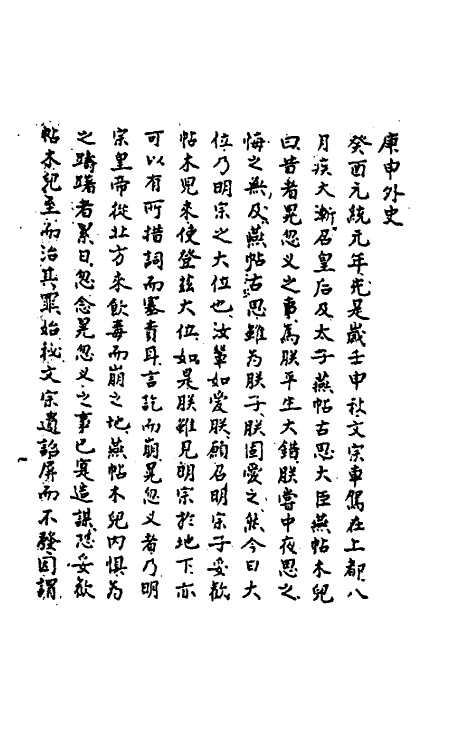 庚申外史
癸酉元統元年先是歲壬申秋文宗車駕在上都八
月疾大漸召皇后及太子燕帖古思大臣燕帖木兒
曰昔者晃忽义之事爲朕平生大錯朕嘗中夜思之
悔之無及燕帖古思雖为朕子朕固愛之然今日大
位乃明宗之大位也汝輩如愛朕願召明宗子妥歡
帖木兒来使登兹大位如是朕雖見明宗於地下亦
可以有所措詞而塞責耳言訖而崩晃忽义者乃明
宗皇帝從北方来飲毒而崩之地燕帖木兒内懼为
之躊躇者累日忽念晃忽义之事已寔造謀恐妥歡
帖木兒至而治其罪始秘文宗遺詔屏而不發因謂